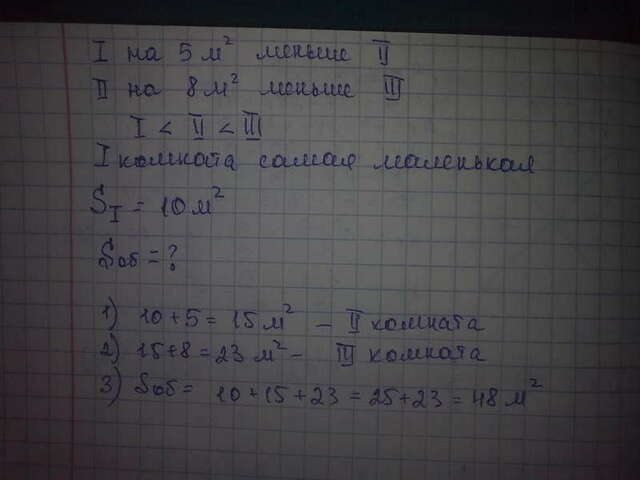 I на 5 м² меньше II
II на 8 м² меньше III
I < II < III
I комната самая маленькая
S_I = 10 м²
Sоб = ?
1) 10 + 5 = 15 м² – II комната
2) 15 + 8 = 23 м² – III комната
3) Sоб = 10 + 15 + 23 = 25 + 23 = 48 м²